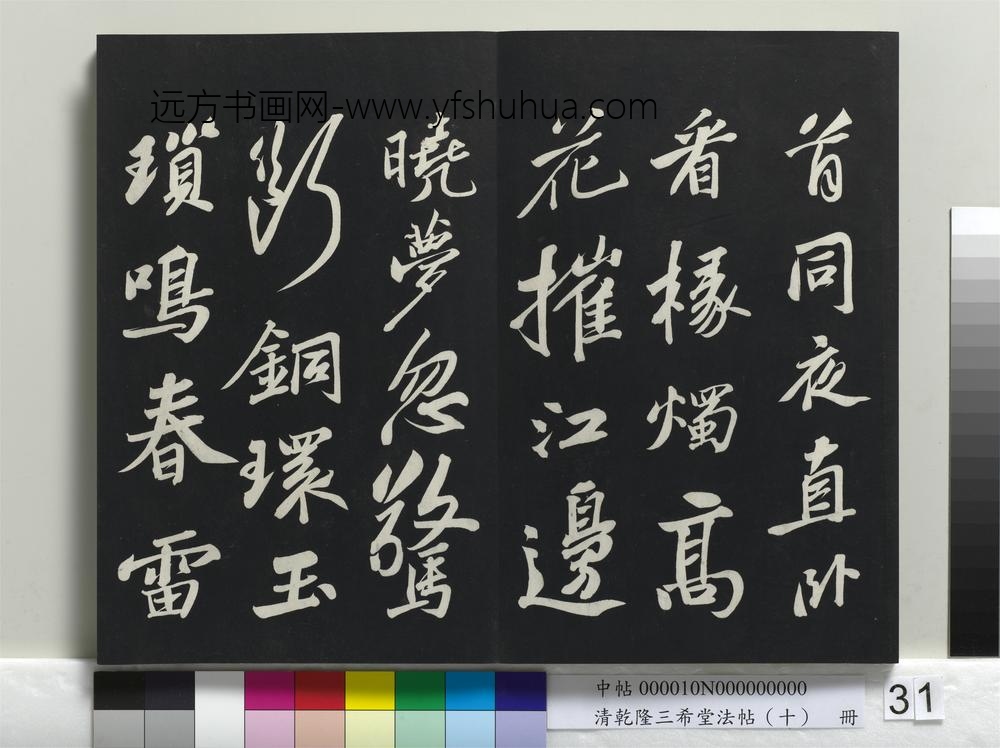 远方书画网-www.yfshuhua.com
首同夜直卧
看椽燭高
花摧江邊
曉夢忽驚
斷銅環玉
瑣鳴春雷
中帖 000010N000000000
清乾隆三希堂法帖（十） 冊
31